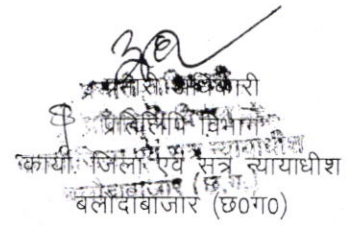 प्रभारी अधिकारी
प्रतिलिपि विभाग
कार्या. जिला एवं सत्र न्यायाधीश
बलौदाबाजार (छ0ग0)